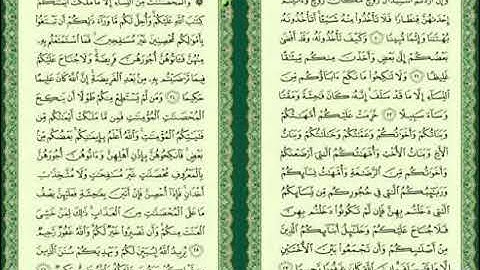 وَإِنْ أَرَدتُّمُ ٱسْتِبْدَالَ زَوْجٍ مَّكَانَ زَوْجٍ وَءَاتَيْتُمْ
إِحْدَىٰهُنَّ قِنطَارًا فَلَا تَأْخُذُوا۟ مِنْهُ شَيْـًٔا أَتَأْخُذُونَهُۥ
بُهْتَٰنًا وَإِثْمًا مُّبِينًا ٢٠ وَكَيْفَ تَأْخُذُونَهُۥ وَقَدْ أَفْضَىٰ
بَعْضُكُمْ إِلَىٰ بَعْضٍ وَأَخَذْنَ مِنكُم مِّيثَٰقًا
غَلِيظًا ٢١ وَلَا تَنكِحُوا۟ مَا نَكَحَ ءَابَآؤُكُم مِّنَ
ٱلنِّسَآءِ إِلَّا مَا قَدْ سَلَفَ إِنَّهُۥ كَانَ فَٰحِشَةً وَمَقْتًا
وَسَآءَ سَبِيلًا ٢٢ حُرِّمَتْ عَلَيْكُمْ أُمَّهَٰتُكُمْ
وَبَنَاتُكُمْ وَأَخَوَٰتُكُمْ وَعَمَّٰتُكُمْ وَخَٰلَٰتُكُمْ وَبَنَاتُ
ٱلْأَخِ وَبَنَاتُ ٱلْأُخْتِ وَأُمَّهَٰتُكُمُ ٱلَّٰتِىٓ أَرْضَعْنَكُمْ
وَأَخَوَٰتُكُم مِّنَ ٱلرَّضَٰعَةِ وَأُمَّهَٰتُ نِسَآئِكُمْ
وَرَبَٰٓئِبُكُمُ ٱلَّٰتِى فِى حُجُورِكُم مِّن نِّسَآئِكُمُ
ٱلَّٰتِى دَخَلْتُم بِهِنَّ فَإِن لَّمْ تَكُونُوا۟ دَخَلْتُم بِهِنَّ
فَلَا جُنَاحَ عَلَيْكُمْ وَحَلَٰٓئِلُ أَبْنَآئِكُمُ ٱلَّذِينَ
مِنْ أَصْلَٰبِكُمْ وَأَن تَجْمَعُوا۟ بَيْنَ ٱلْأُخْتَيْنِ
إِلَّا مَا قَدْ سَلَفَ إِنَّ ٱللَّهَ كَانَ غَفُورًا رَّحِيمًا ٢٣
وَٱلْمُحْصَنَٰتُ مِنَ ٱلنِّسَآءِ إِلَّا مَا مَلَكَتْ أَيْمَٰنُكُمْ
كِتَٰبَ ٱللَّهِ عَلَيْكُمْ وَأُحِلَّ لَكُم مَّا وَرَآءَ ذَٰلِكُمْ أَن تَبْتَغُوا۟
بِأَمْوَٰلِكُم مُّحْصِنِينَ غَيْرَ مُسَٰفِحِينَ فَمَا ٱسْتَمْتَعْتُم بِهِۦ
مِنْهُنَّ فَـَٔاتُوهُنَّ أُجُورَهُنَّ فَرِيضَةً وَلَا جُنَاحَ عَلَيْكُمْ
فِيمَا تَرَٰضَيْتُم بِهِۦ مِنۢ بَعْدِ ٱلْفَرِيضَةِ إِنَّ ٱللَّهَ كَانَ عَلِيمًا
حَكِيمًا ٢٤ وَمَن لَّمْ يَسْتَطِعْ مِنكُمْ طَوْلًا أَن يَنكِحَ
ٱلْمُحْصَنَٰتِ ٱلْمُؤْمِنَٰتِ فَمِن مَّا مَلَكَتْ أَيْمَٰنُكُم مِّن
فَتَيَٰتِكُمُ ٱلْمُؤْمِنَٰتِ وَٱللَّهُ أَعْلَمُ بِإِيمَٰنِكُم بَعْضُكُم مِّنۢ
بَعْضٍ فَٱنكِحُوهُنَّ بِإِذْنِ أَهْلِهِنَّ وَءَاتُوهُنَّ أُجُورَهُنَّ
بِٱلْمَعْرُوفِ مُحْصَنَٰتٍ غَيْرَ مُسَٰفِحَٰتٍ وَلَا مُتَّخِذَٰتِ
أَخْدَانٍ فَإِذَآ أُحْصِنَّ فَإِنْ أَتَيْنَ بِفَٰحِشَةٍ فَعَلَيْهِنَّ نِصْفُ
مَا عَلَى ٱلْمُحْصَنَٰتِ مِنَ ٱلْعَذَابِ ذَٰلِكَ لِمَنْ خَشِىَ
ٱلْعَنَتَ مِنكُمْ وَأَن تَصْبِرُوا۟ خَيْرٌ لَّكُمْ وَٱللَّهُ غَفُورٌ رَّحِيمٌ
٢٥ يُرِيدُ ٱللَّهُ لِيُبَيِّنَ لَكُمْ وَيَهْدِيَكُمْ سُنَنَ ٱلَّذِينَ